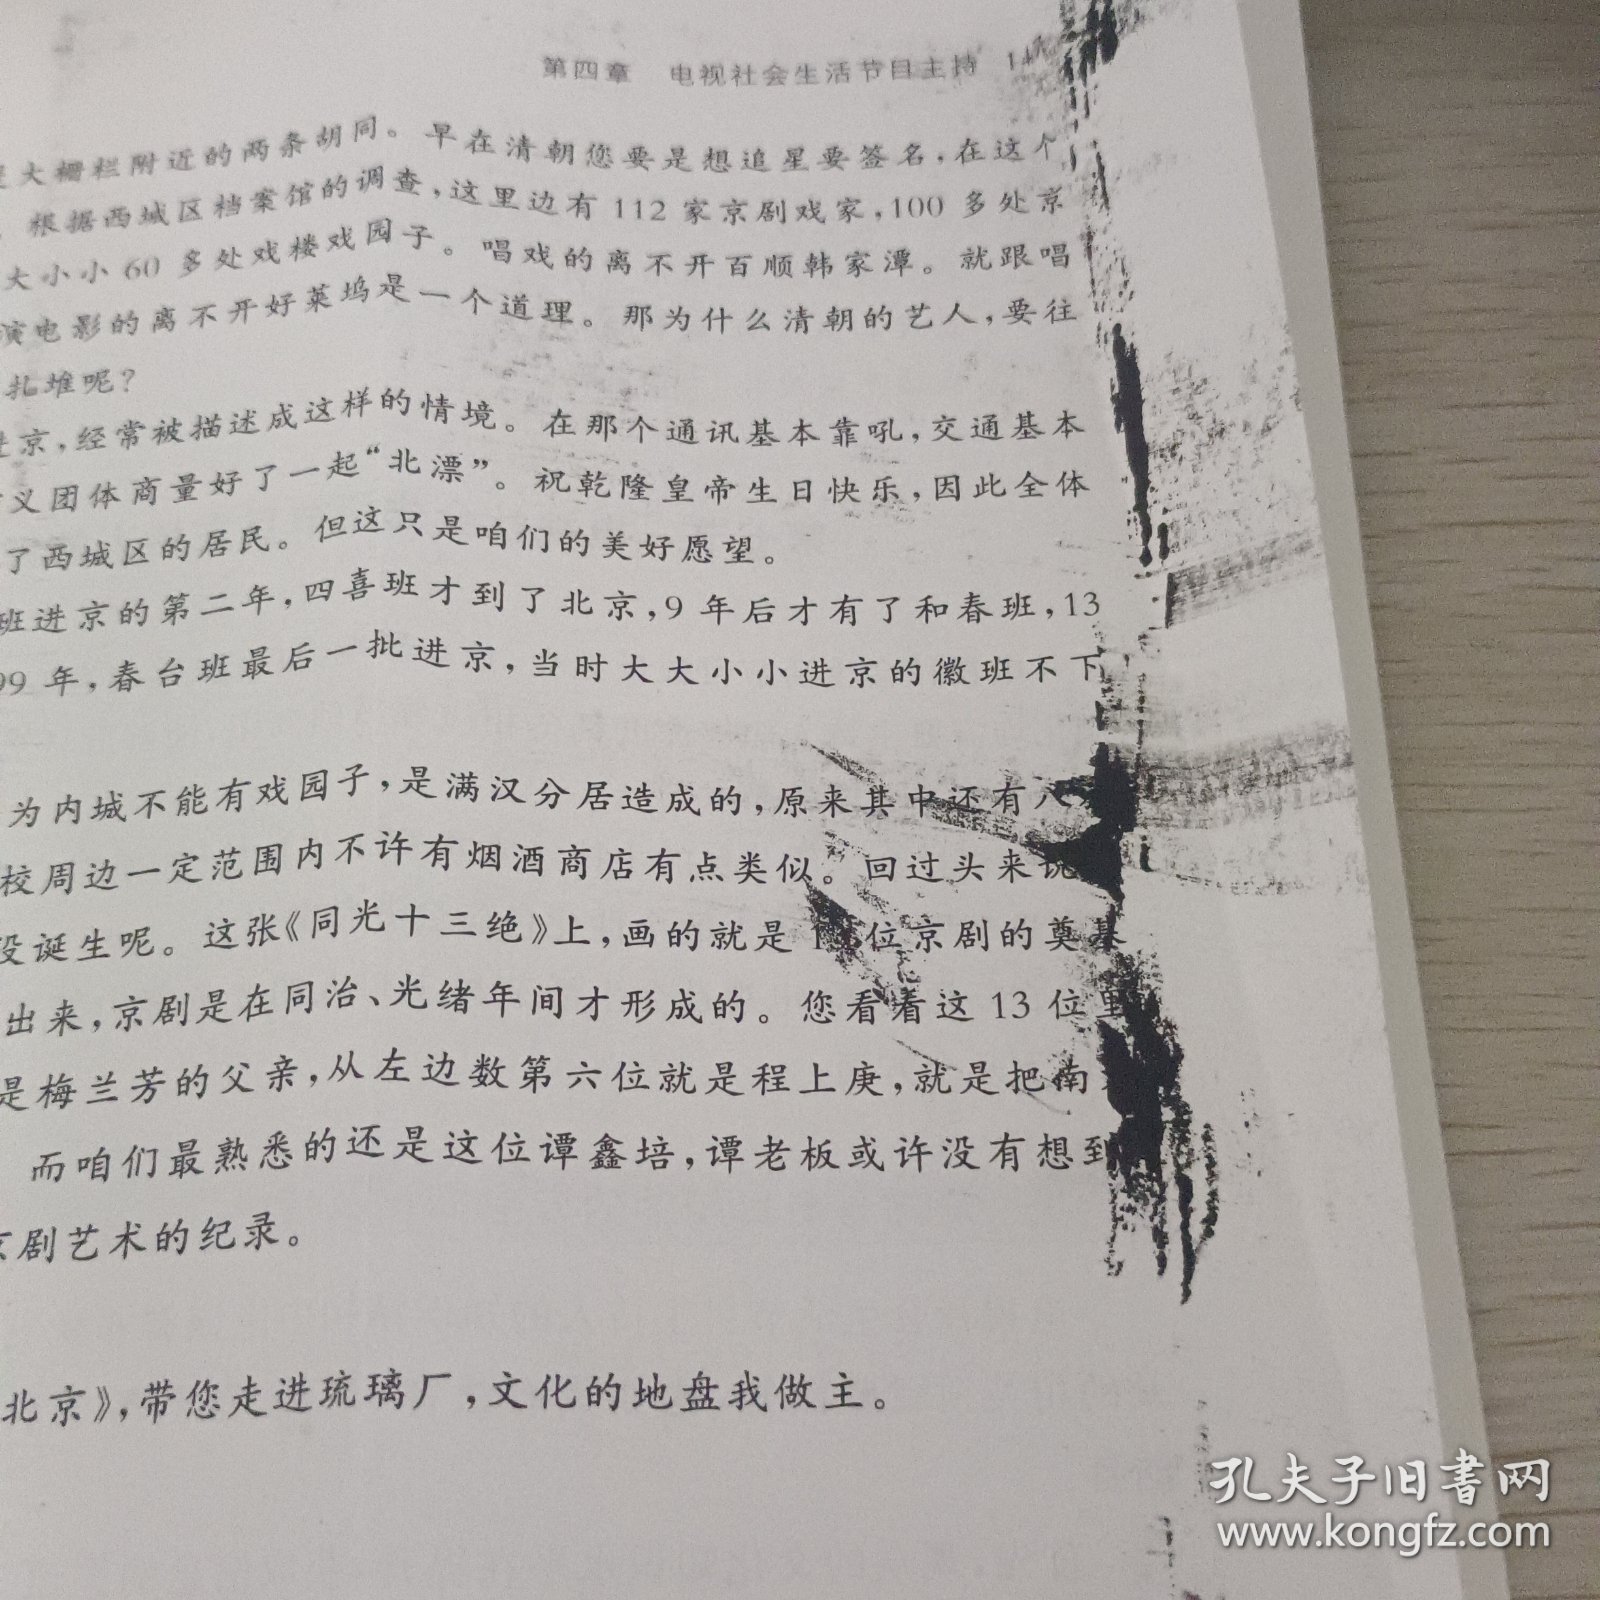 第四章 电视社会生活节目主持
大栅栏附近的两条胡同。早在清朝您要是想追星要签名,在这个
根据西城区档案馆的调查,这里边有112家京剧戏家,100多处京
大小小60多处戏楼戏园子。唱戏的离不开百顺韩家潭。就跟唱
演电影的离不开好莱坞是一个道理。那为什么清朝的艺人,要往
扎堆呢?
进京,经常被描述成这样的情境。在那个通讯基本靠吼,交通基本
义团体商量好了一起“北漂”。祝乾隆皇帝生日快乐,因此全体
了西城区的居民。但这只是咱们的美好愿望。
班进京的第二年,四喜班才到了北京,9年后才有了和春班,13
99年,春台班最后一批进京,当时大大小小进京的徽班不下
为内城不能有戏园子,是满汉分居造成的,原来其中还有八
校周边一定范围内不许有烟酒商店有点类似。回过头来说
没诞生呢。这张《同光十三绝》上,画的就是 位京剧的奠基
出来,京剧是在同治、光绪年间才形成的。您看看这13位里
是梅兰芳的父亲,从左边数第六位就是程上庚,就是把南
而咱们最熟悉的还是这位谭鑫培,谭老板或许没有想到
京剧艺术的纪录。
北京》,带您走进琉璃厂,文化的地盘我做主。
孔夫子旧书网
www.kongfz.com